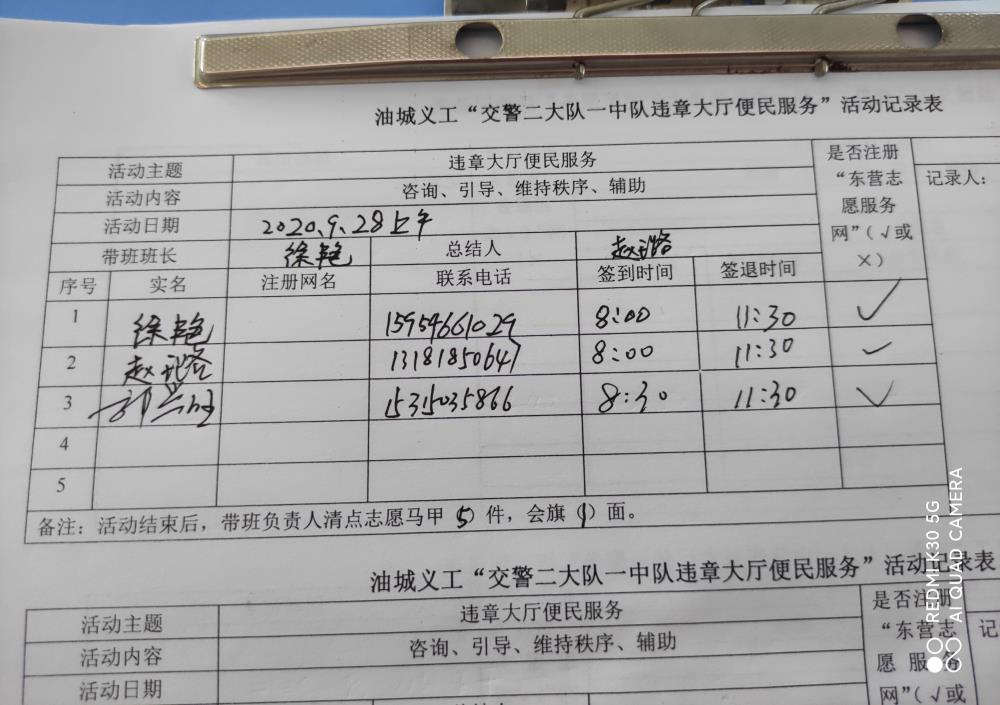 油城义工“交警二大队一中队违章大厅便民服务”活动记录表
活动主题 违章大厅便民服务 是否注册“东营志愿服务网”（√或×） 记录人：
活动内容 咨询、引导、维持秩序、辅助
活动日期 2020.9.28上午
带班班长 徐艳 总结人 赵
序号 实名 注册网名 联系电话 签到时间 签退时间
1 徐艳 15954661029 8:00 11:30 ✓
2 赵 13181850647 8:00 11:30 ✓
3 15315035866 8:30 11:30 ✓
4
5
备注：活动结束后，带班负责人清点志愿马甲（5）件，会旗（1）面。
油城义工“交警二大队一中队违章大厅便民服务”活动记录表
活动主题 违章大厅便民服务 是否注册“东营志愿服务网”（√或 记
活动内容 咨询、引导、维持秩序、辅助
活动日期
REDMI K30 5G
AI QUAD CAMERA